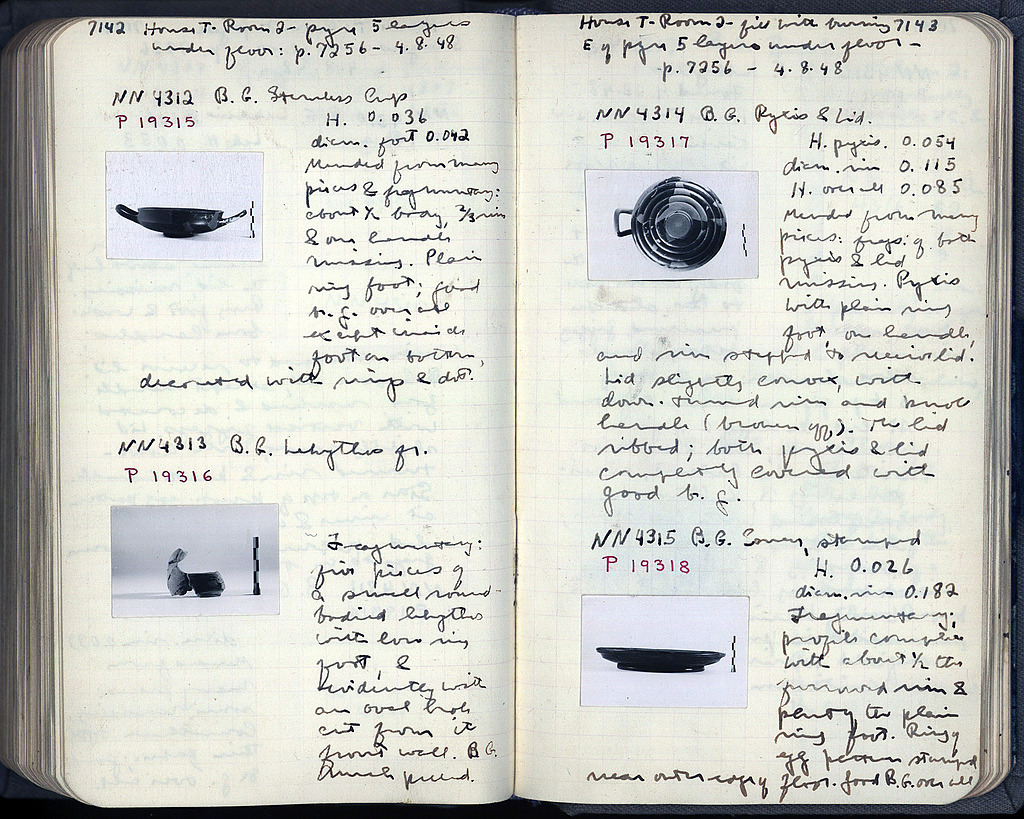 7142 House T - Room 2 - pyre 5 layers
under floor: p. 7256 - 4.8.48
NN 4312 B.G. Stemless Cup
P 19315
H. 0.036
diam. foot 0.042
Mended from many
pieces & fragmentary:
about ½ body, ⅔ rim
& one handle
missing. Plain
ring foot; good
b.g. over all
except inside
foot on bottom,
decorated with rings & dot.
NN 4313 B.G. Lekythos fr.
P 19316
Fragmentary:
five pieces of
a small round-
bodied lekythos
with low ring
foot, &
evidently with
an oval hole
cut from its
front wall. B.G.
House T - Room 2 - fill with burning 7143
E of pyre 5 layers under floor -
p. 7256 - 4.8.48
NN 4314 B.G. Pyxis & Lid.
P 19317
H. pyxis. 0.054
diam. rim 0.115
H. overall 0.085
Mended from many
pieces: frags. of both
pyxis & lid
missing. Pyxis
with plain ring
foot, one handle,
and rim stepped to receive lid.
Lid slightly convex, with
down-turned rim and knob
handle (broken off). The lid
ribbed; both pyxis & lid
completely covered with
good b.g.
NN 4315 B.G. Saucer, stamped
P 19318
H. 0.026
diam. rim 0.182
Fragmentary;
profile complete
with about ½ the
furrowed rim &
plenty the plain
ring foot. Ring of
egg pattern stamped
near outer edge of floor. Good B.G. over all